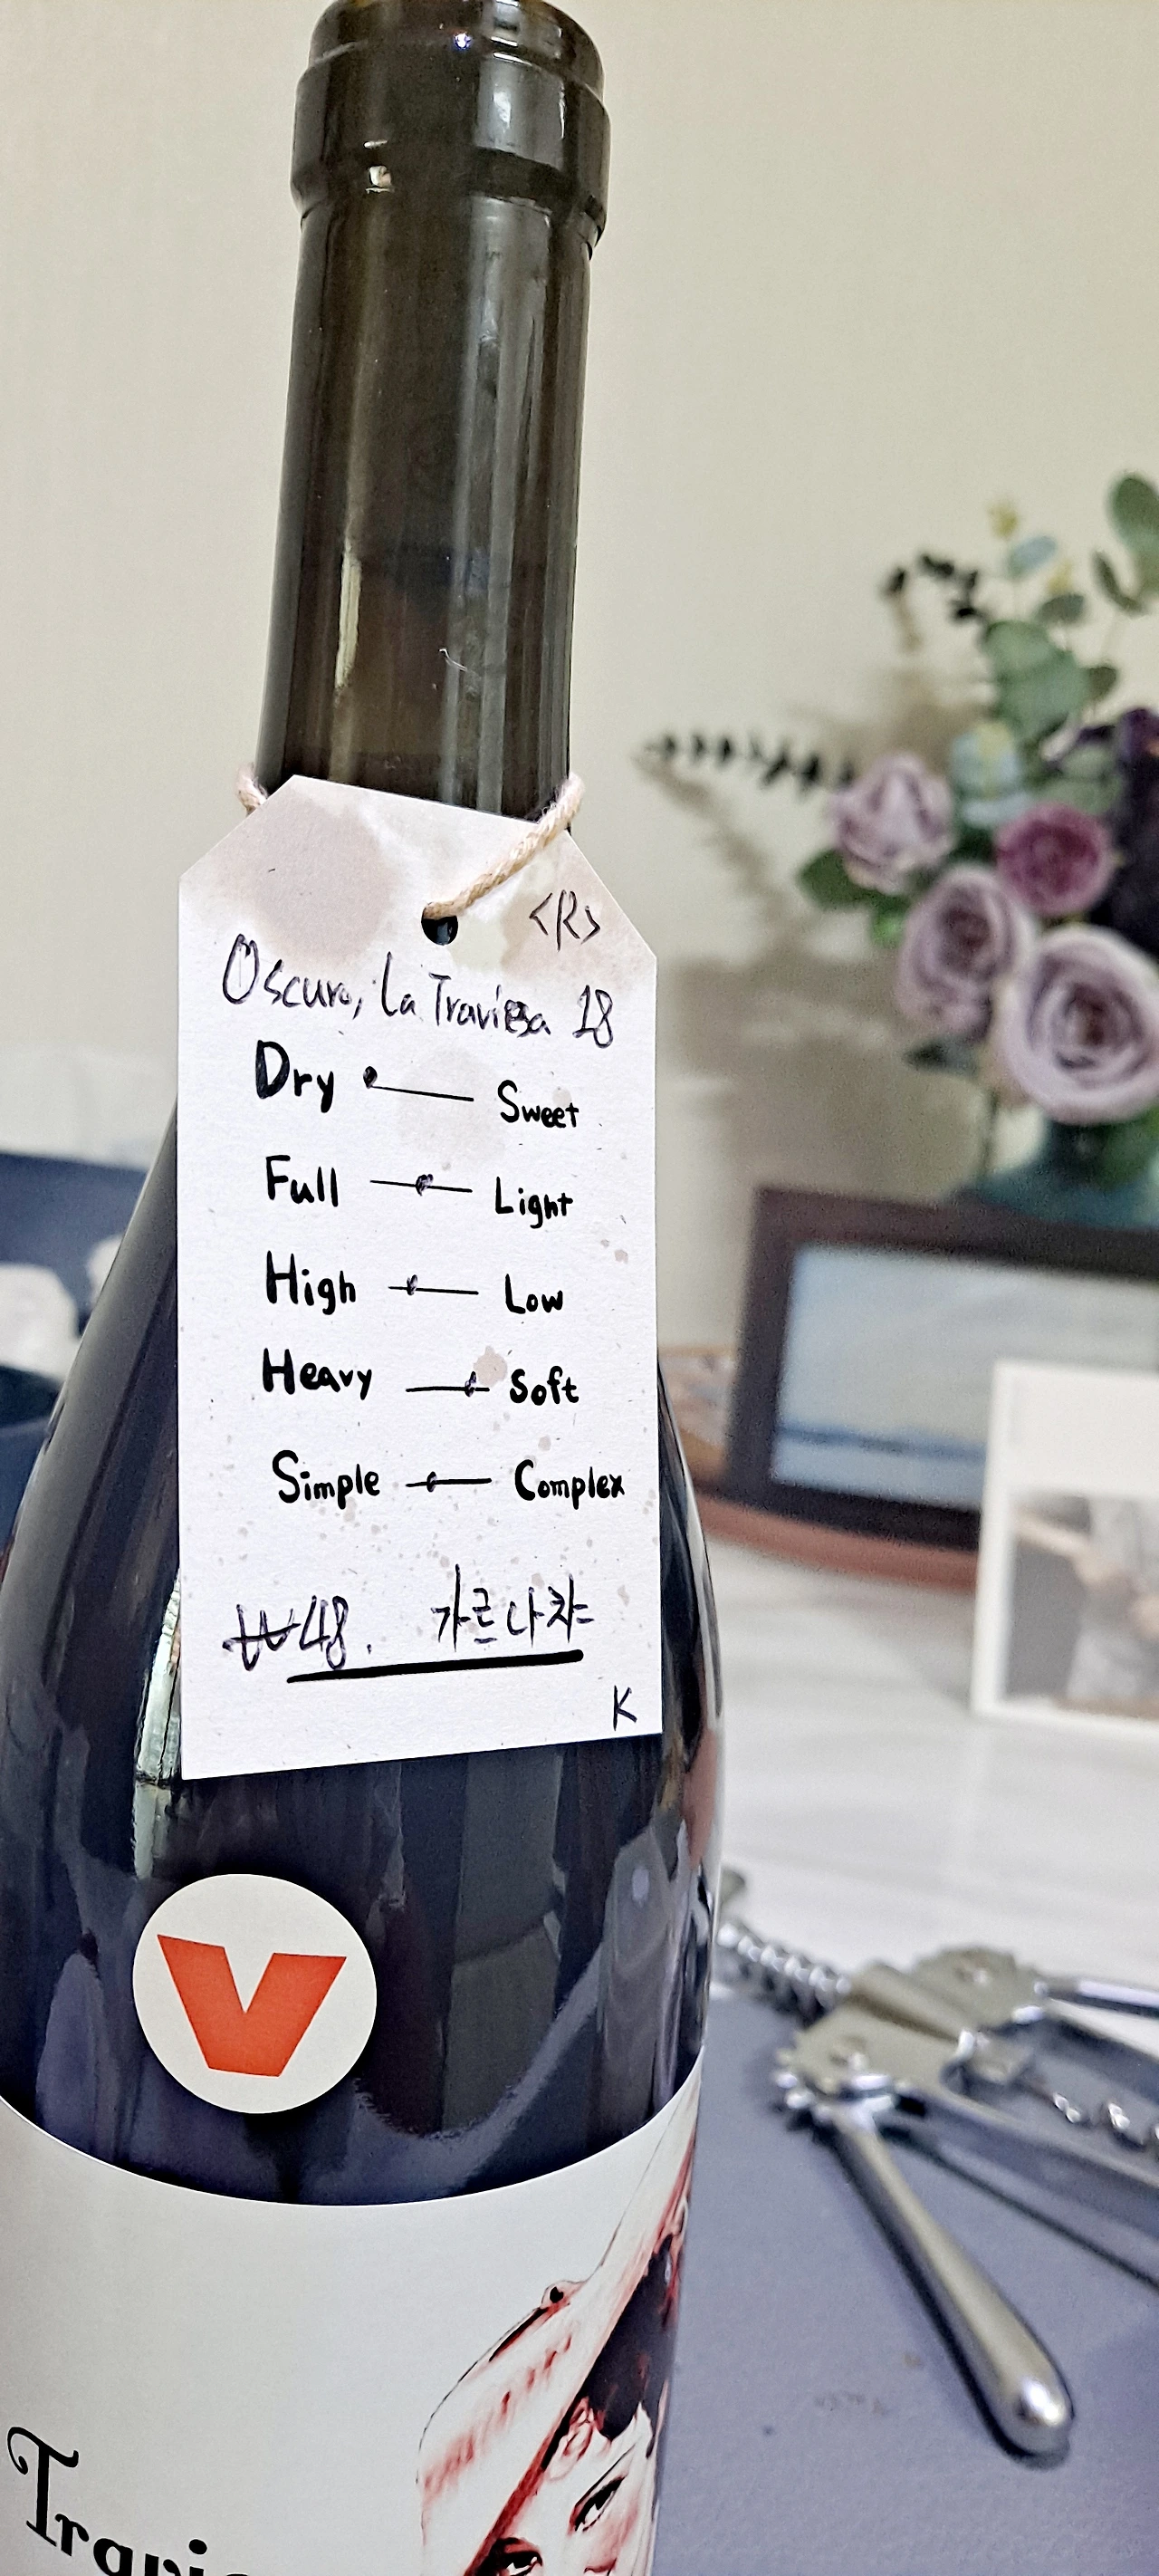 <R>
Oscuro, La Traviesa 18
Dry Sweet
Full Light
High Low
Heavy Soft
Simple Complex
₩48. 가르나차
K
V
Travie